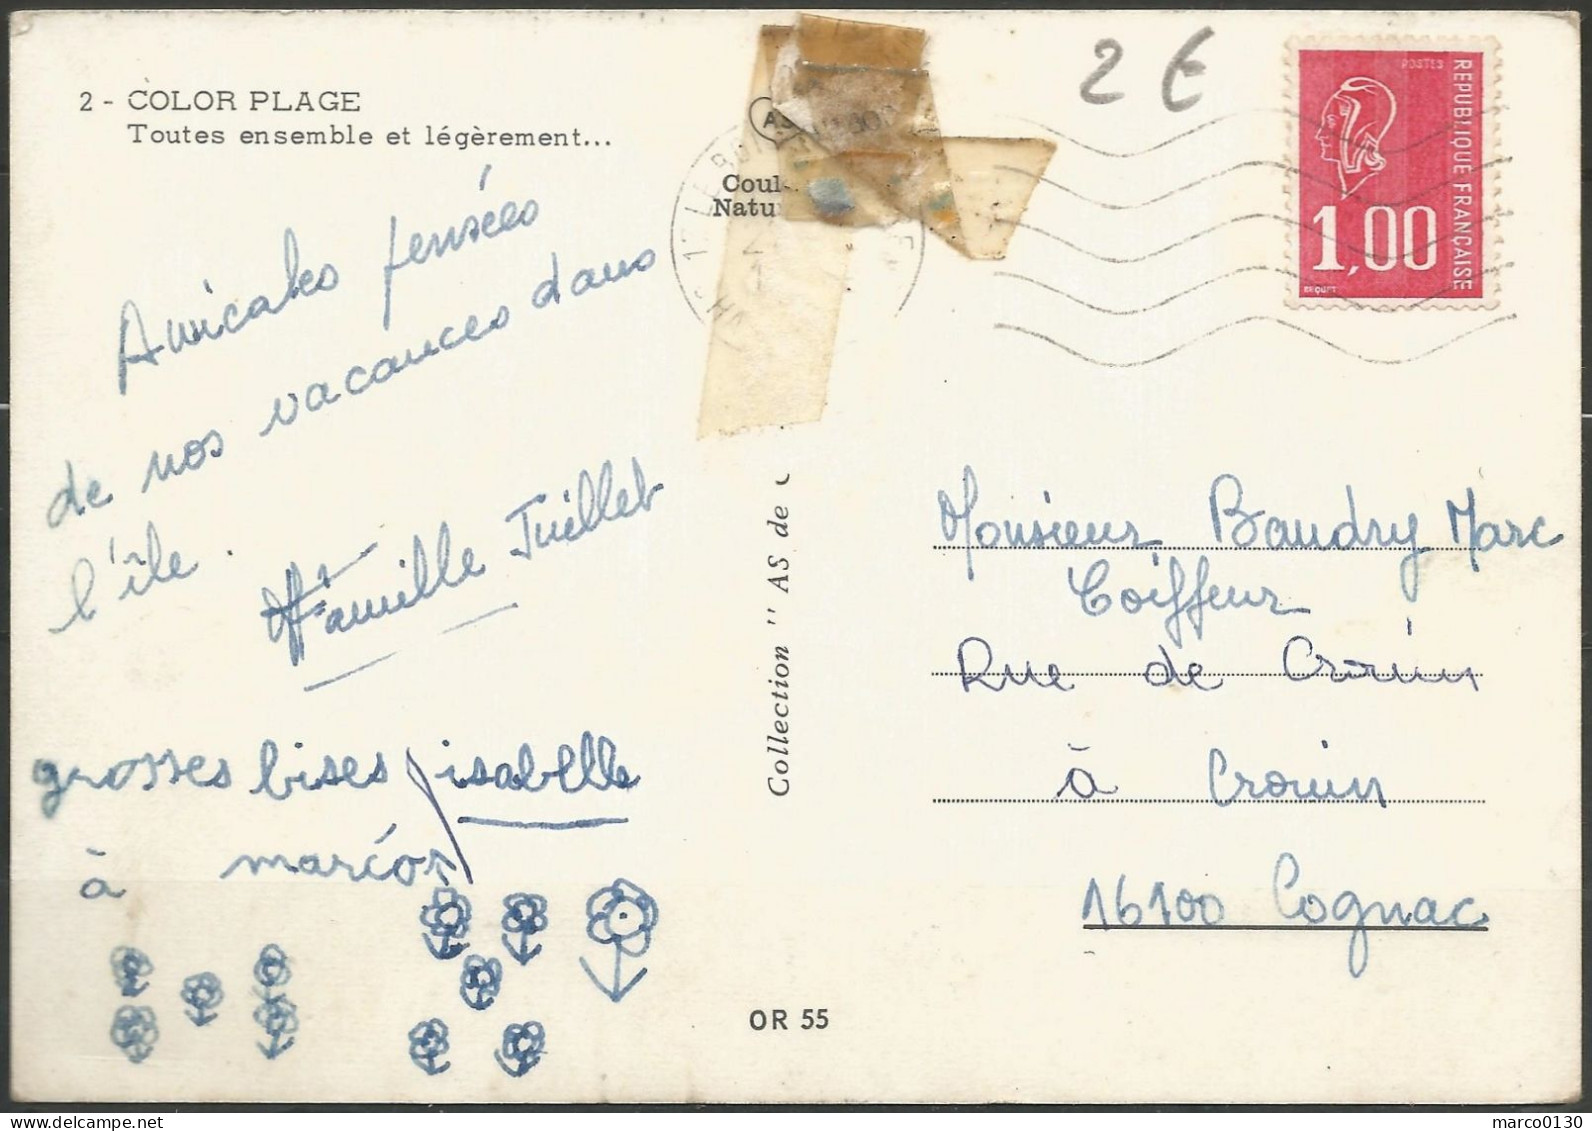 2 - COLOR PLAGE
Toutes ensemble et légèrement...
Amicales pensées
de nos vacances dans
l'île.
Famille Juillet
grosses bises isabelle
à
OR 55
Collection " AS de
AS
Coul
Natu
17 LE BOI
2 €
POSTES
REPUBLIQUE FRANÇAISE
1,00
BEQUET
Monsieur Baudry Marc
Coiffeur
Rue de Crouin
à Crouin
16100 Cognac
marco0130